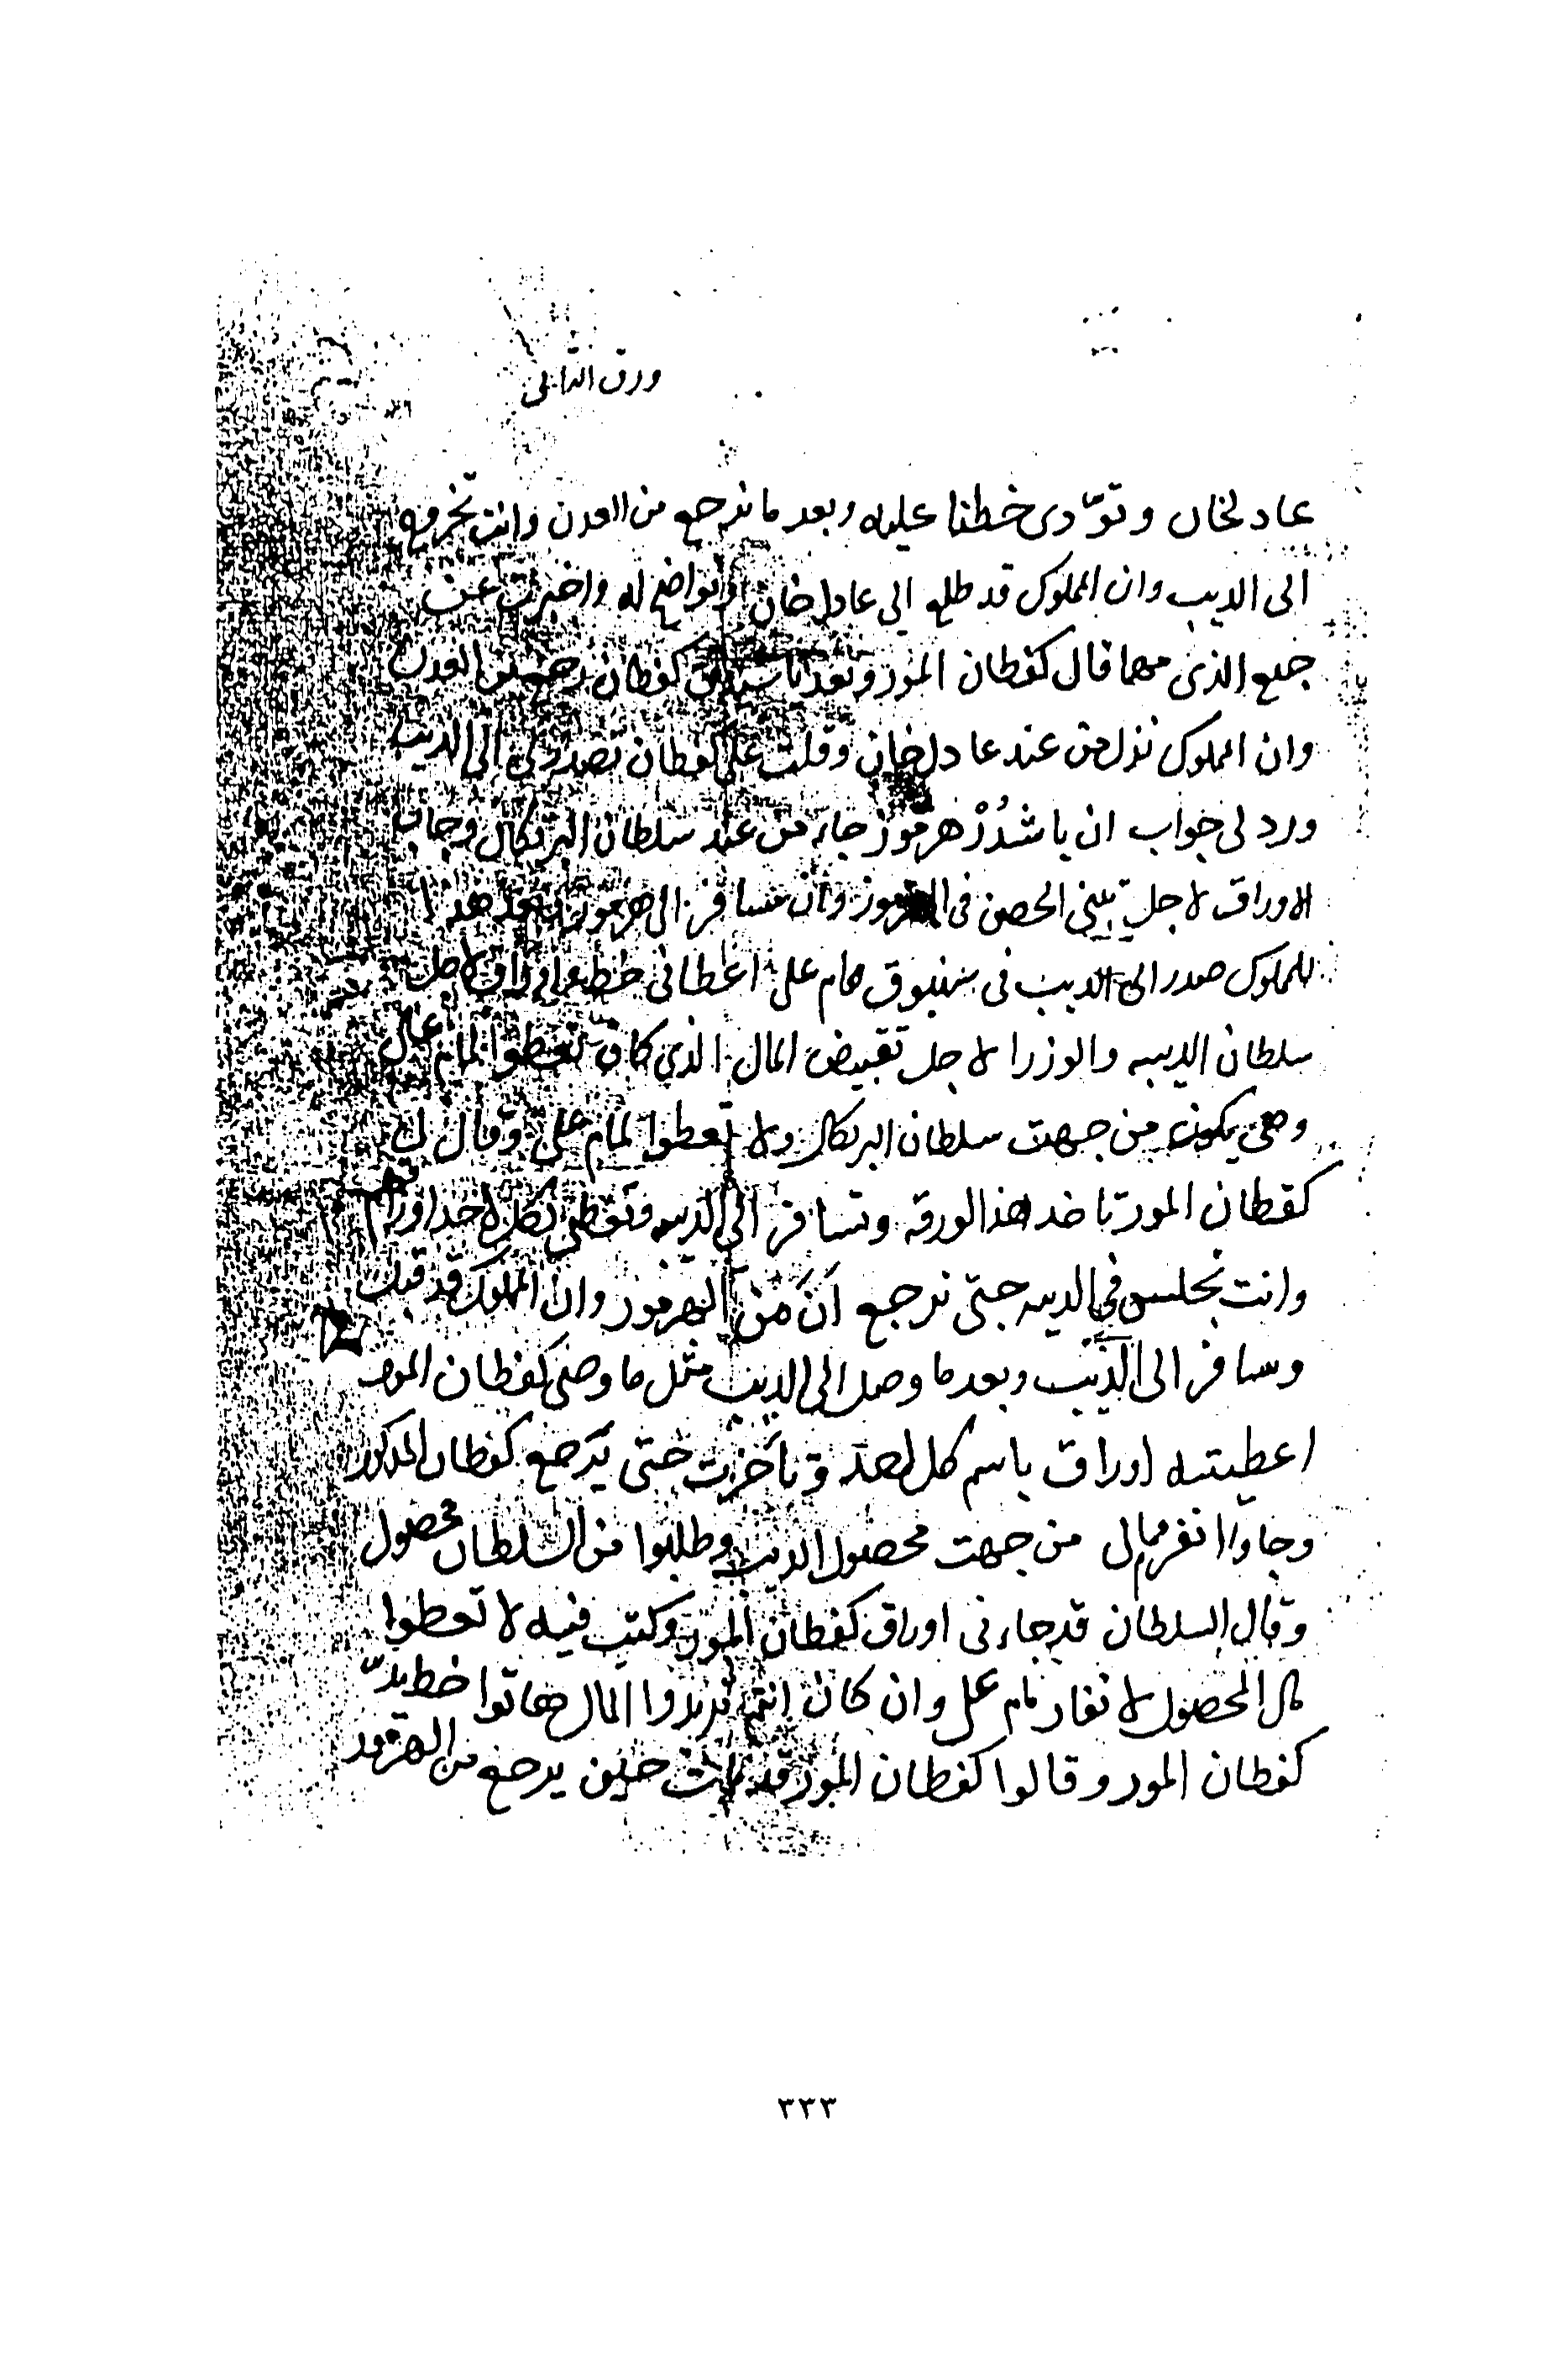 ورق الثاني
عادلخان وتودى خطنا عليه وبعد ما نرجع من العدن وانت تخرج
الى الديب وان المملوك قد طلع الى عادل خان وتواضع له واخبرت عن
جميع الذي مهما قال كفطان المور وبعد كفطان رجع العدن
وان المملوك نزل من عند عادل خان وقلت على كفطان تصدرني الى الديب
ورد لي جواب ان باشدُرْ هرموز جاء من عند سلطان البرتكال وجاب
الاوراق لاجل تبني الحصن في الهرموز وان مسافر الى هرموز بعد هذا
للمملوك صدر الى الديب في سنبوق مام علي اعطاني خطه اوراق لاجل
سلطان الديبه والوزرا لاجل تقبيض المال الذي كان تعطوا لمام علي
وهي يكون من جهت سلطان البرتكال ولا تعطوا لمام علي وقال لي
كفطان المور تاخد هذا الورقه وتسافر الى الديبه وتعطي لكل احد اوراقهم
وانت تجلس في الديبه حتى نرجع اَنَ مَن الهرموز وان المملوك قد قبل
وسافر الى الديب وبعد ما وصل الى الديب مثل ما وصى كفطان المور
اعطيته اوراق باسم كل احد وتأخرت حتى يرجع كفطان المذكور
وجاوا انفر ممالي من جهت محصول الديب وطلبوا من السلطان محصول
وقال السلطان قد جاءني اوراق كفطان المور وكتب فيه لا تعطوا
مال المحصول لانفار مام علي وان كان انتم تريدوا المال هاتوا خط يد
كفطان المور وقالوا كفطان المور قد مات حين يرجع من الهرموز
٣٣٣